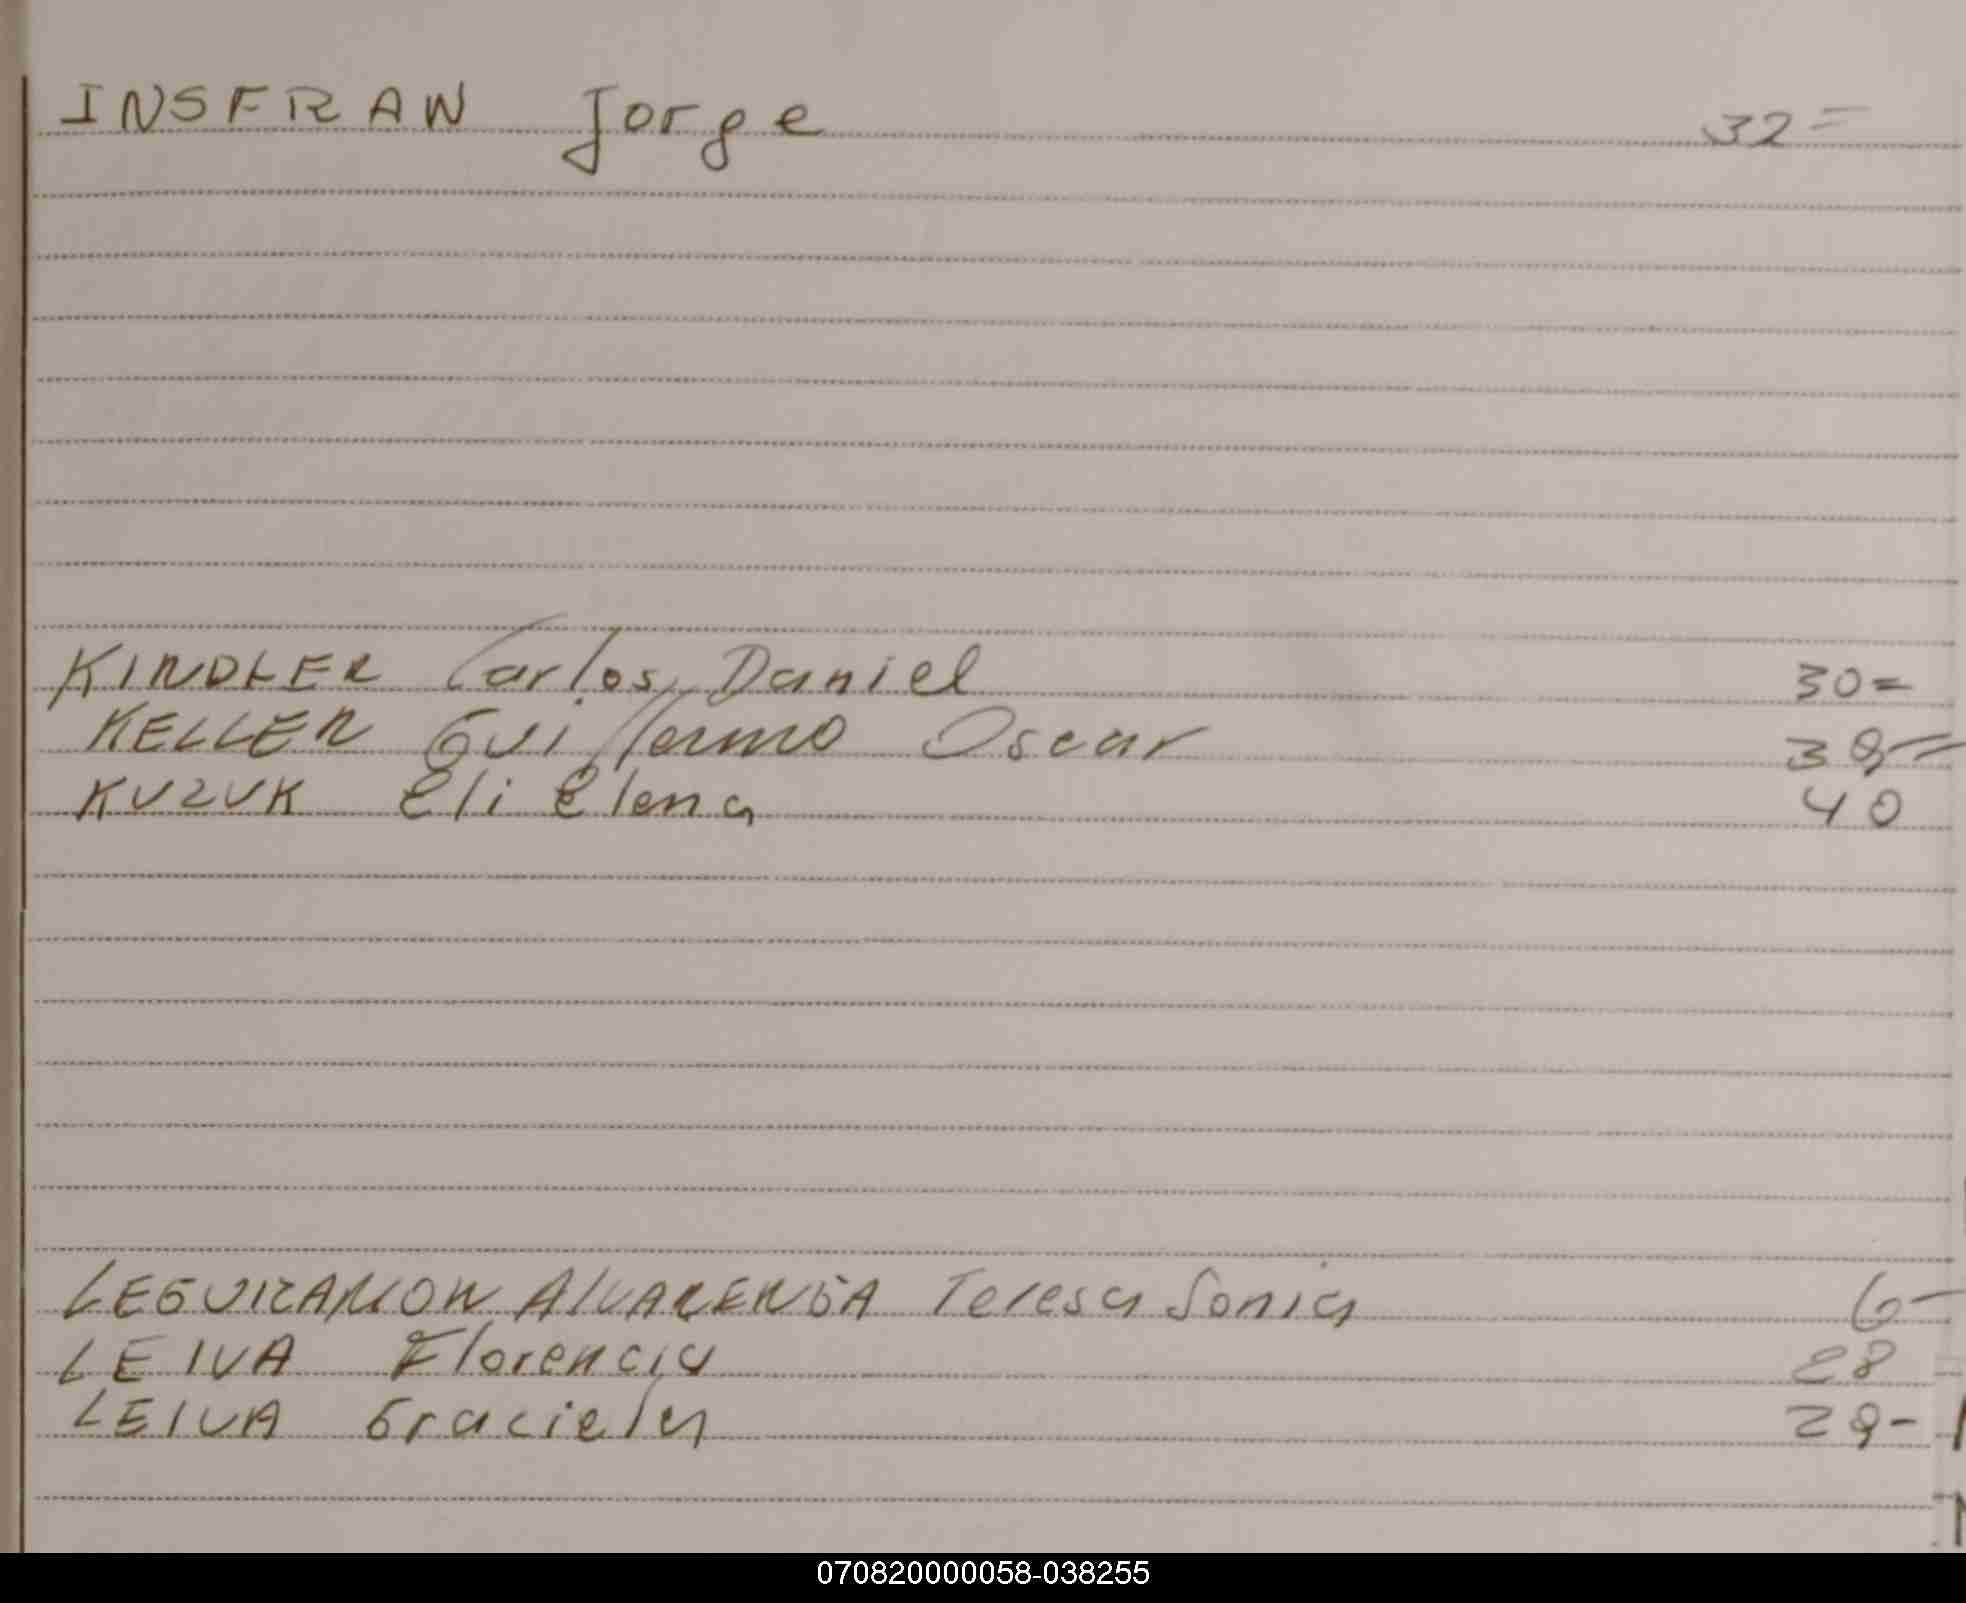 INSFRAN Jorge 32=
KINDLER Carlos Daniel 30=
KELLER Guillermo Oscar 39=
KUZUK Eli Elena 40
LEGUIZAMON AlVARENGA Teresa Sonia 6-
LEIVA Florencia 28 =
LEIVA Graciela 29-
070820000058-038255